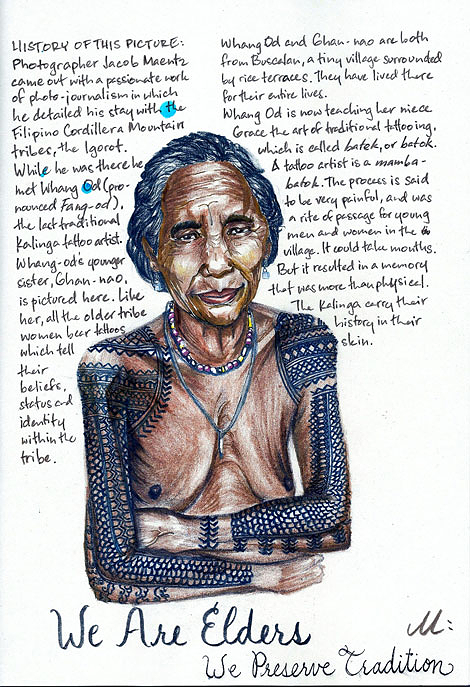 HISTORY OF THIS PICTURE:
Photographer Jacob Maentz
came out with a passionate work
of photo-journalism in which
he detailed his stay with the
Filipino Cordillera Mountain
tribes, the Igorot.
While he was there he
met Whang Od (pro-
nounced Fang-od),
the last traditional
Kalinga tattoo artist.
Whang-od's younger
sister, Ghan-nao,
is pictured here. Like
her, all the older tribe
women bear tattoos
which tell
their
beliefs,
status and
identity
within the
tribe.
Whang Od and Ghan-nao are both
from Buscalan, a tiny village surrounded
by rice terraces. They have lived there
for their entire lives.
Whang Od is now teaching her niece
Grace the art of traditional tattooing,
which is called batek, or batok.
A tattoo artist is a mamba-
batok. The process is said
to be very painful, and was
a rite of passage for young
men and women in the
village. It could take months.
But it resulted in a memory
that was more than physical.
The Kalinga carry their
history in their
skin.
We Are Elders
We Preserve Tradition
M: